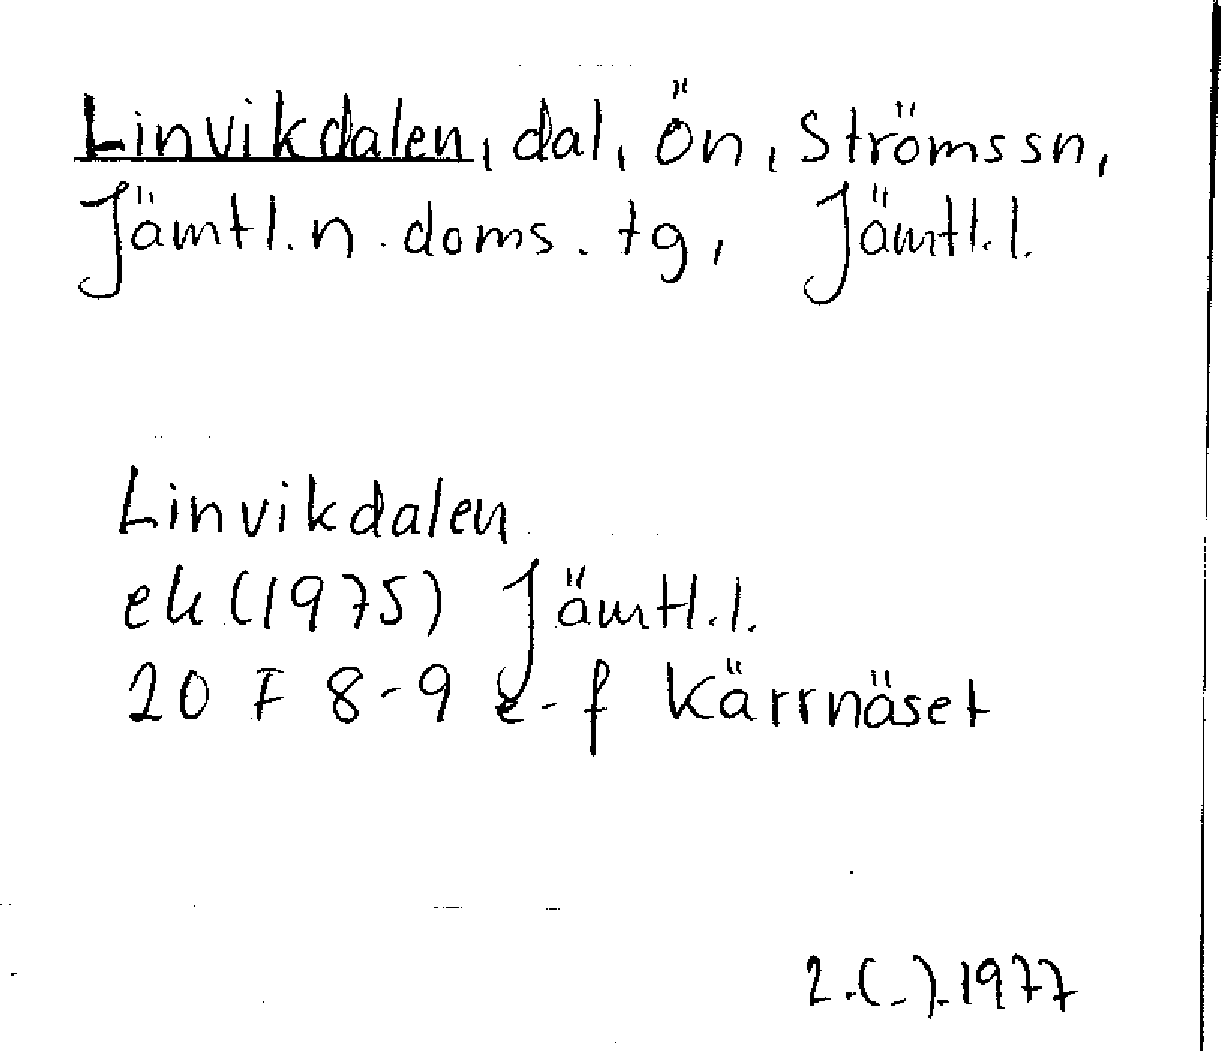 Linvikdalen, dal, Ön, Ströms sn,
Jämtl. n. doms. tg, Jämtl. l.
Linvikdalen
ek (1975) Jämtl. l.
20 F 8-9 e-f Kärrnäset
2.(-).1977